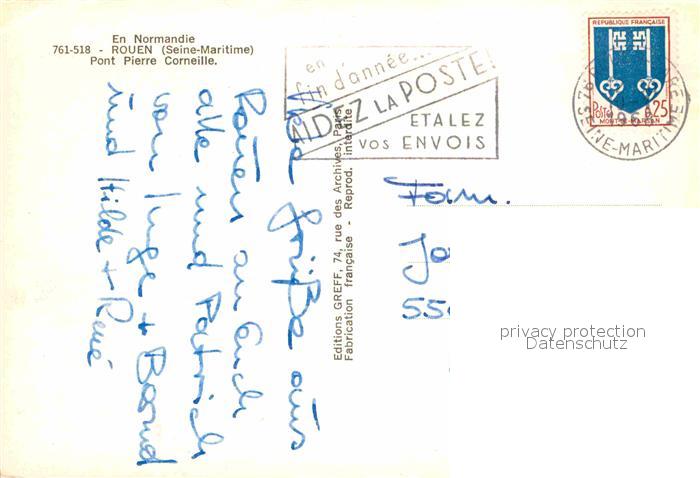 En Normandie
761-518 - ROUEN (Seine-Maritime)
Pont Pierre Corneille.
en
fin d'année...
AIDEZ LA POSTE!
ETALEZ
VOS ENVOIS
REPUBLIQUE FRANÇAISE
Postes 0,25
MONT-DE-MARSAN
SEINE-MARITIME
Viele Grüße aus
Rouen an Euch
alle und Patrick
von Inge + Bernd
und Hilde + René
Editions GREFF, 74, rue des Archives, Paris
Fabrication française - Reprod. interdite
Fam.
Jo
55
privacy protection
Datenschutz